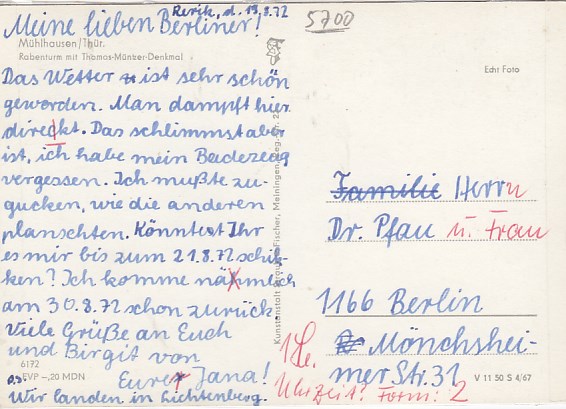 Rerik, d. 13.8.72
5700
Meine lieben Berliner!
Mühlhausen/Thür.
Rabenturm mit Thomas-Müntzer-Denkmal
Echt Foto
Das Wetter ist sehr schön
geworden. Man dampft hier
direckt. Das schlimmst aber
ist, ich habe mein Badezeug
vergessen. Ich mußte zu-
gucken, wie die anderen
planschten. Könntest Ihr
es mir bis zum 21.8.72 schik-
ken? Ich komme nähmlich
am 30.8.72 schon zurück.
Viele Grüße an Euch
und Birgit von
Eurer Jana!
Wir landen in Lichtenberg.
6172
EVP -,20 MDN
Kunstanstalt Straub & Fischer, Meiningen
Familie Herrn
Dr. Pfau u. Frau
1166 Berlin
Mönchshei-
mer Str. 31
V 11 50 S 4/67
Uhrzeit? Form: 2